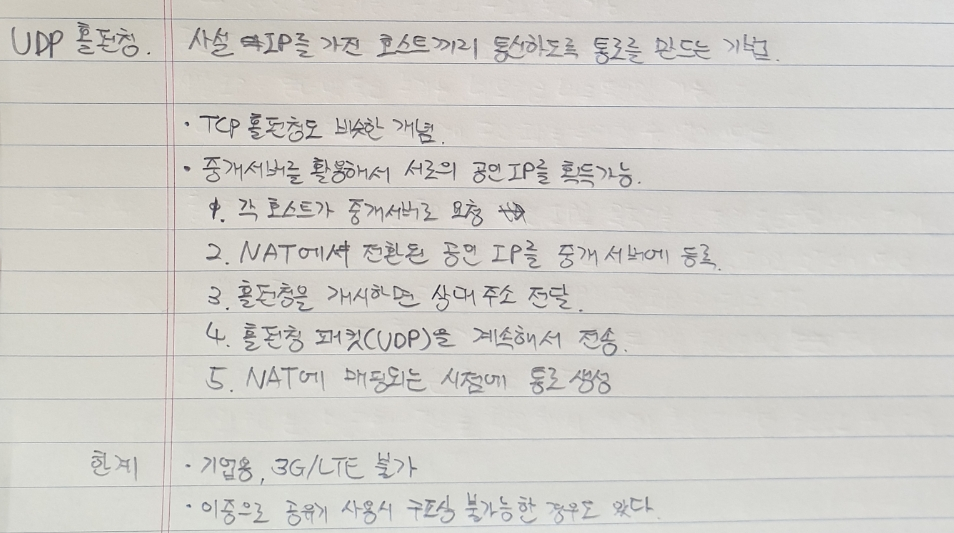 UDP 홀펀칭. 사설 IP를 가진 호스트끼리 통신하도록 통로를 만드는 기법.
· TCP 홀펀칭도 비슷한 개념.
· 중개서버를 활용해서 서로의 공인IP를 획득가능.
1. 각 호스트가 중개서버로 요청
2. NAT에서 전환된 공인 IP를 중개 서버에 등록.
3. 홀펀칭을 개시하면 상대 주소 전달.
4. 홀펀칭 패킷(UDP)을 계속해서 전송.
5. NAT에 매핑되는 시점에 통로 생성
한계 · 기업용, 3G/LTE 불가
· 이중으로 공유기 사용시 구조상 불가능한 경우도 있다.